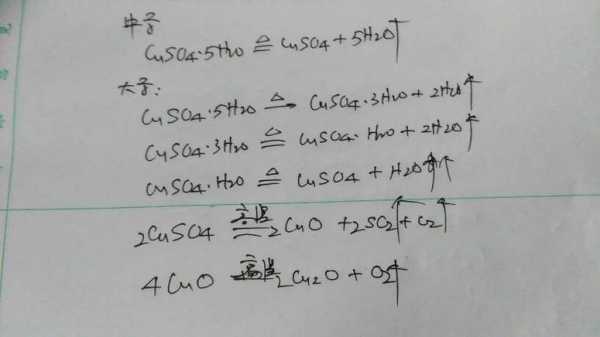 中学
CuSO4·5H2O ≜ CuSO4 + 5H2O↑
大学:
CuSO4·5H2O △→ CuSO4·3H2O + 2H2O↑
CuSO4·3H2O ≜ CuSO4·H2O + 2H2O↑
CuSO4·H2O ≜ CuSO4 + H2O↑
2CuSO4 高温= 2CuO + 2SO2↑ + O2↑
4CuO 高温= 2Cu2O + O2↑